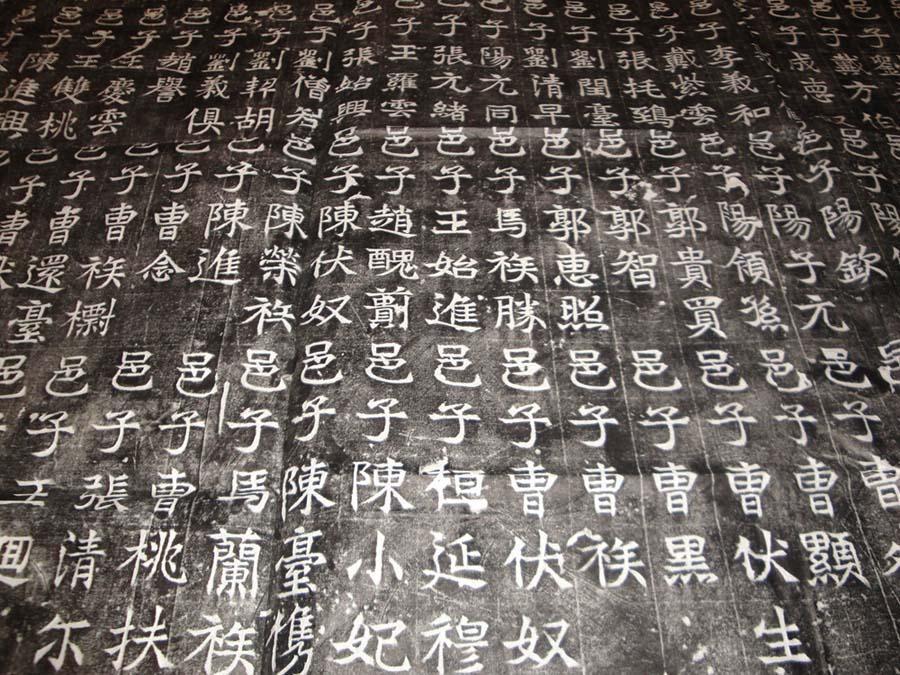 邑子劉伯
邑子戴方
子叔
邑子李羲和
邑子戴雲
邑子張托鵄
邑子劉閏臺
邑子劉清早
邑子陽元同
邑子張元緒
邑子王羅雲
邑子張始興
邑子劉僧智
邑子劉胡
邑子劉羲俱
邑子趙譽
邑子王慶雲
子王雙桃
子陳進迴
邑子陽
邑子陽欽
邑子陽子元
邑子陽領孫
邑子郭貴買
邑子郭智
邑子郭惠照
邑子馬祑勝
邑子王始進
邑子趙醜
邑子陳伏奴
邑子陳榮祑
邑子陳進
邑子曹念
邑子曹祑
邑子曹還臺
邑子曹
邑子曹顯
邑子曹伏生
邑子曹黑
邑子曹祑
邑子曹伏奴
邑子桓延穆
邑子陳小妃
邑子陳臺
邑子馬蘭祑
邑子曹桃扶
邑子張清尒
邑子王迴